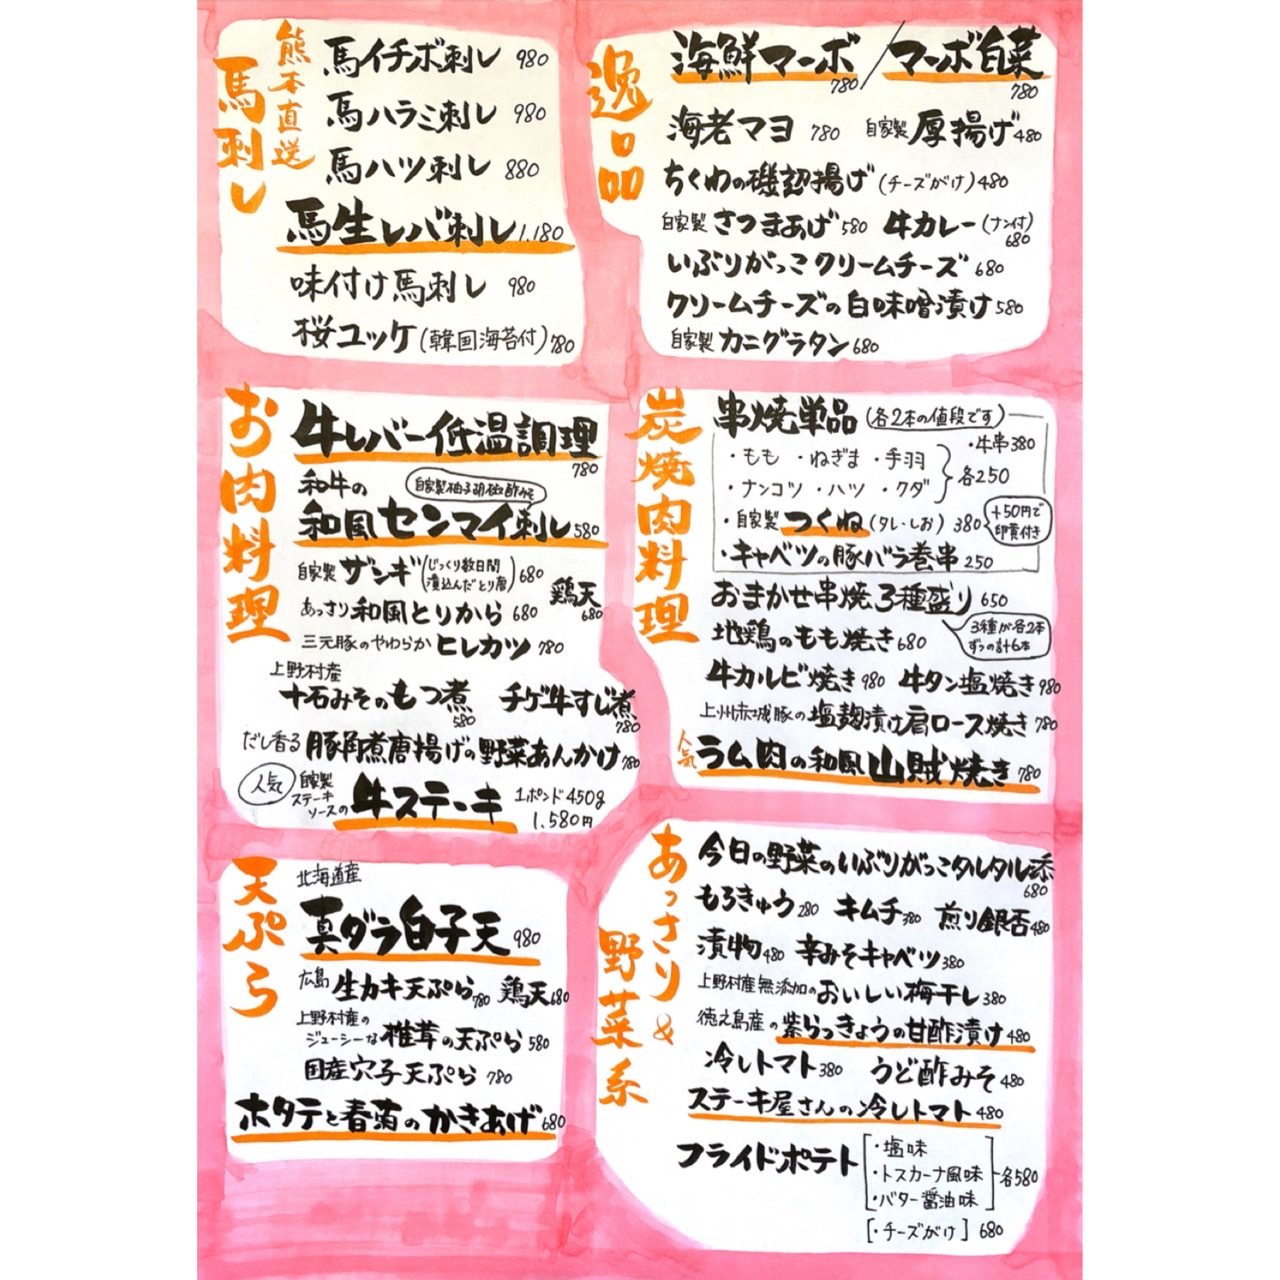 熊本直送
馬刺し
馬イチボ刺し 980
馬ハラミ刺し 980
馬ハツ刺し 880
馬生レバ刺し 1,180
味付け馬刺し 980
桜ユッケ(韓国海苔付) 780
逸品
海鮮マーボ 780 / マーボ白菜 780
海老マヨ 780 自家製 厚揚げ 480
ちくわの磯辺揚げ(チーズがけ) 480
自家製 さつまあげ 580 牛カレー(ナン付) 680
いぶりがっこクリームチーズ 680
クリームチーズの白味噌漬け 580
自家製 カニグラタン 680
お肉料理
牛レバー低温調理 780
和牛の 自家製柚子胡椒酢みそ
和風センマイ刺し 580
自家製 ザンギ(じっくり数日間漬込んだとり唐) 680
鶏天 680
あっさり和風とりから 680
三元豚のやわらか ヒレカツ 780
上野村産
十石みそのもつ煮 580 チゲ牛すじ煮 780
だし香る 豚角煮唐揚げの野菜あんかけ 780
人気 自家製ステーキソースの 牛ステーキ 1ポンド450g 1,580円
炭焼肉料理
串焼単品(各2本の値段です)
・牛串380
・もも ・ねぎま ・手羽
・ナンコツ ・ハツ ・クダ 各250
・自家製 つくね(タレ・しお) 380 +50円で卵黄付き
・キャベツの豚バラ巻串 250
おまかせ串焼3種盛り 650
3種が各2本ずつの計6本
地鶏のもも焼き 680
牛カルビ焼き 980 牛タン塩焼き 980
上州赤城豚の 塩麹漬け肩ロース焼き 780
人気 ラム肉の和風山賊焼き 780
天ぷら
北海道産
真ダラ白子天 980
広島 生カキ天ぷら 780 鶏天 680
上野村産の
ジューシーな 椎茸の天ぷら 580
国産穴子天ぷら 780
ホタテと春菊のかきあげ 680
あっさり&野菜系
今日の野菜のいぶりがっこタルタル添 680
もろきゅう 280 キムチ 380 煎り銀杏 480
漬物 480 辛みそキャベツ 380
上野村産無添加の おいしい梅干し 380
徳之島産の 紫らっきょうの甘酢漬け 480
冷しトマト 380 うど酢みそ 480
ステーキ屋さんの冷しトマト 480
フライドポテト
・塩味
・トスカーナ風味
・バター醤油味
各580
[・チーズがけ] 680